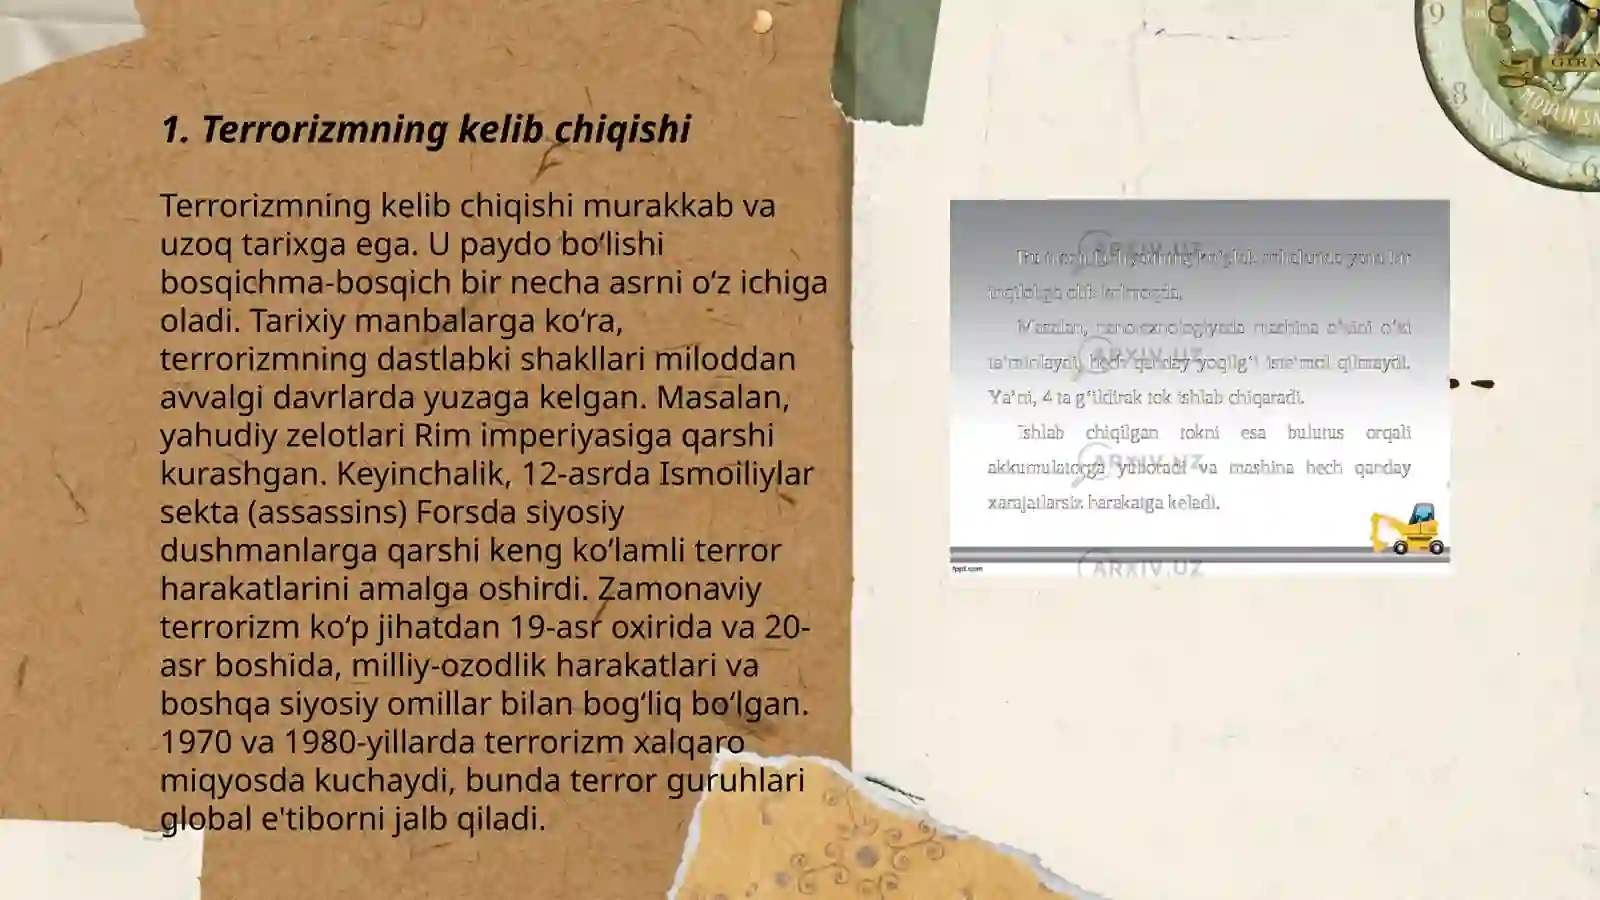 1. Terrorizmning kelib chiqishi
Terrorizmning kelib chiqishi murakkab va
uzoq tarixga ega. U paydo bo‘lishi
bosqichma-bosqich bir necha asrni o‘z ichiga
oladi. Tarixiy manbalarga ko‘ra,
terrorizmning dastlabki shakllari miloddan
avvalgi davrlarda yuzaga kelgan. Masalan,
yahudiy zelotlari Rim imperiyasiga qarshi
kurashgan. Keyinchalik, 12-asrda Ismoiliylar
sekta (assassins) Forsda siyosiy
dushmanlarga qarshi keng ko‘lamli terror
harakatlarini amalga oshirdi. Zamonaviy
terrorizm ko‘p jihatdan 19-asr oxirida va 20-
asr boshida, milliy-ozodlik harakatlari va
boshqa siyosiy omillar bilan bog‘liq bo‘lgan.
1970 va 1980-yillarda terrorizm xalqaro
miqyosda kuchaydi, bunda terror guruhlari
global e'tiborni jalb qiladi.
9
8
6
MOULIN
ARXIV.UZ
Masalan, nanotexnologiyada mashina o‘zini o‘zi
ta’minlaydi, hech qanday yoqilg‘i iste’mol qilmaydi.
ARXIV.UZ
Ya’ni, 4 ta g‘ildirak tok ishlab chiqaradi.
Ishlab chiqilgan tokni esa bulutus orqali
akkumulatorga yuboradi va mashina hech qanday
ARXIV.UZ
xarajatlarsiz harakatga keladi.
fppt.com
ARXIV.UZ